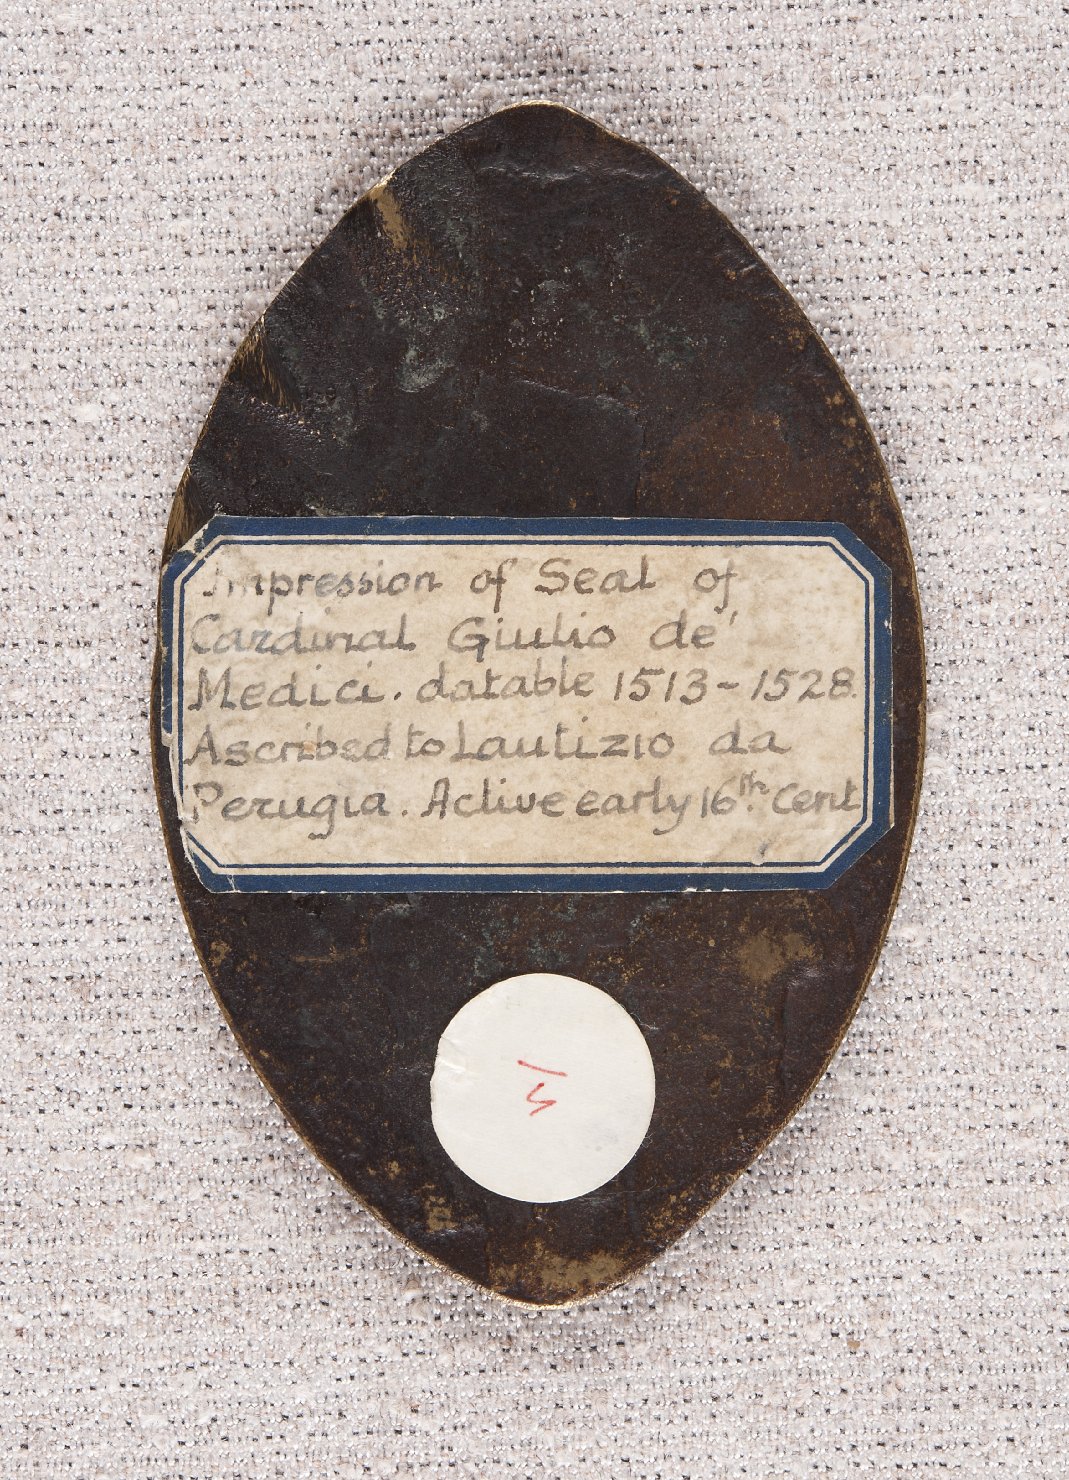 Impression of Seal of
Cardinal Giulio de'
Medici. datable 1513-1528.
Ascribed to Lautizio da
Perugia. Active early 16th. Cent